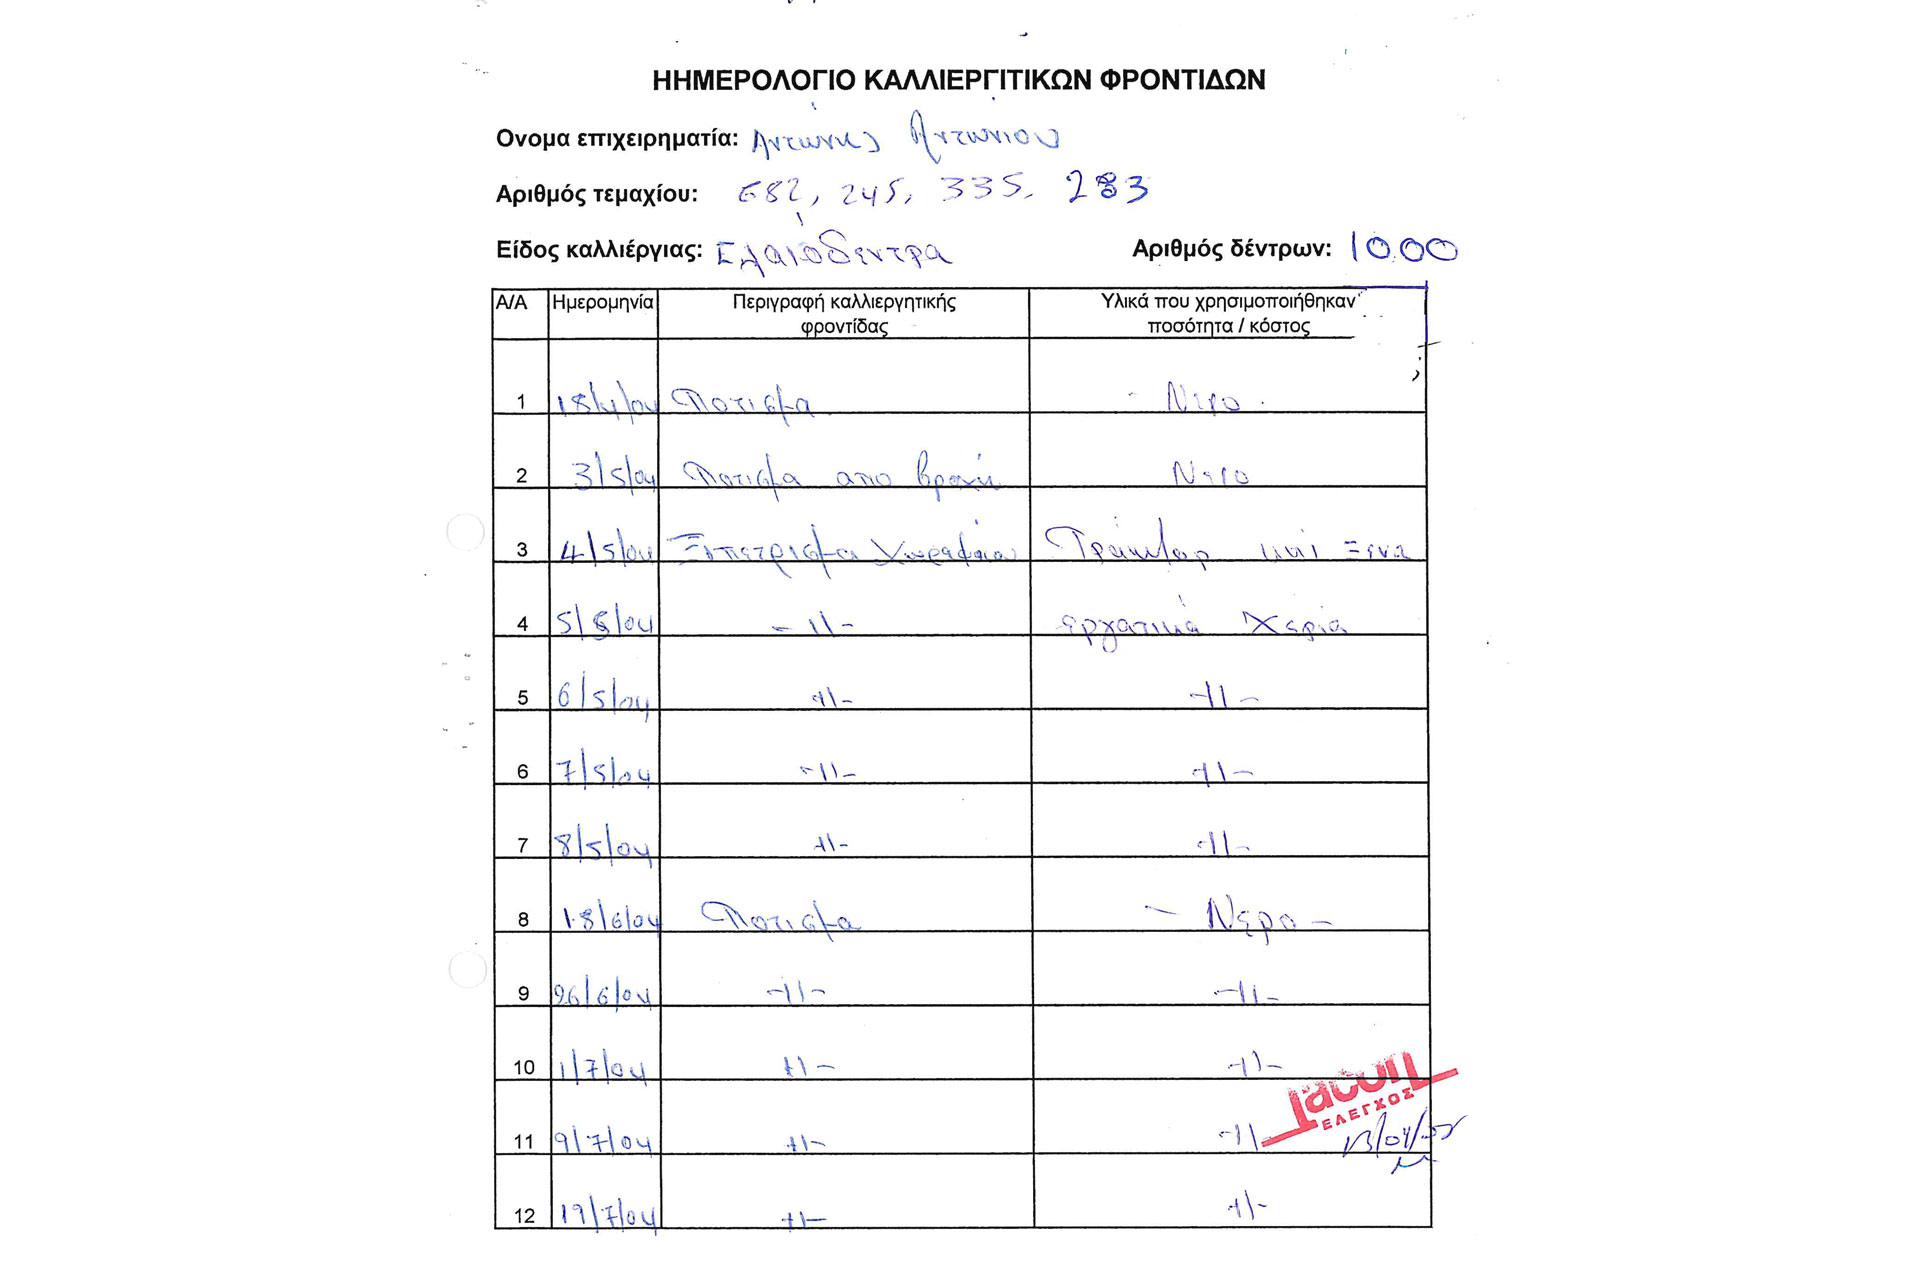 ΗΗΜΕΡΟΛΟΓΙΟ ΚΑΛΛΙΕΡΓΙΤΙΚΩΝ ΦΡΟΝΤΙΔΩΝ
Ονομα επιχειρηματία: Αντώνης Αντωνίου
Αριθμός τεμαχίου: 682, 245, 335, 283
Είδος καλλιέργιας: Ελαιόδεντρα Αριθμός δέντρων: 1000
Α/Α Ημερομηνία Περιγραφή καλλιεργητικής φροντίδας Υλικά που χρησιμοποιήθηκαν ποσότητα / κόστος
1 18/4/04 Ποτισμα - Νερο
2 3/5/04 Ποτισμα απο βροχή Νερο
3 4/5/04 Ξιπετρισμα Χωραφιου Τράκτορ και Ξενα
4 5/5/04 -//- εργατικά Χερια
5 6/5/04 -//- -//-
6 7/5/04 -//- -//-
7 8/5/04 -//- -//-
8 18/6/04 Ποτισμα - Νερο -
9 26/6/04 -//- -//-
10 1/7/04 -//- -//-
11 9/7/04 -//- -//-
12 19/7/04 -//- -//-
lacon
ΕΛΕΓΧΟΣ